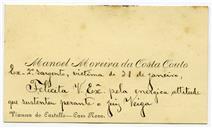 Manoel Moreira da Costa Couto
Ex-2º Sargento, victima de 31 de janeiro,
Felicita V. Ex.ª pela energica attitude
que sustentou perante o juiz Veiga
Vianna do Castello — Caes Novo.